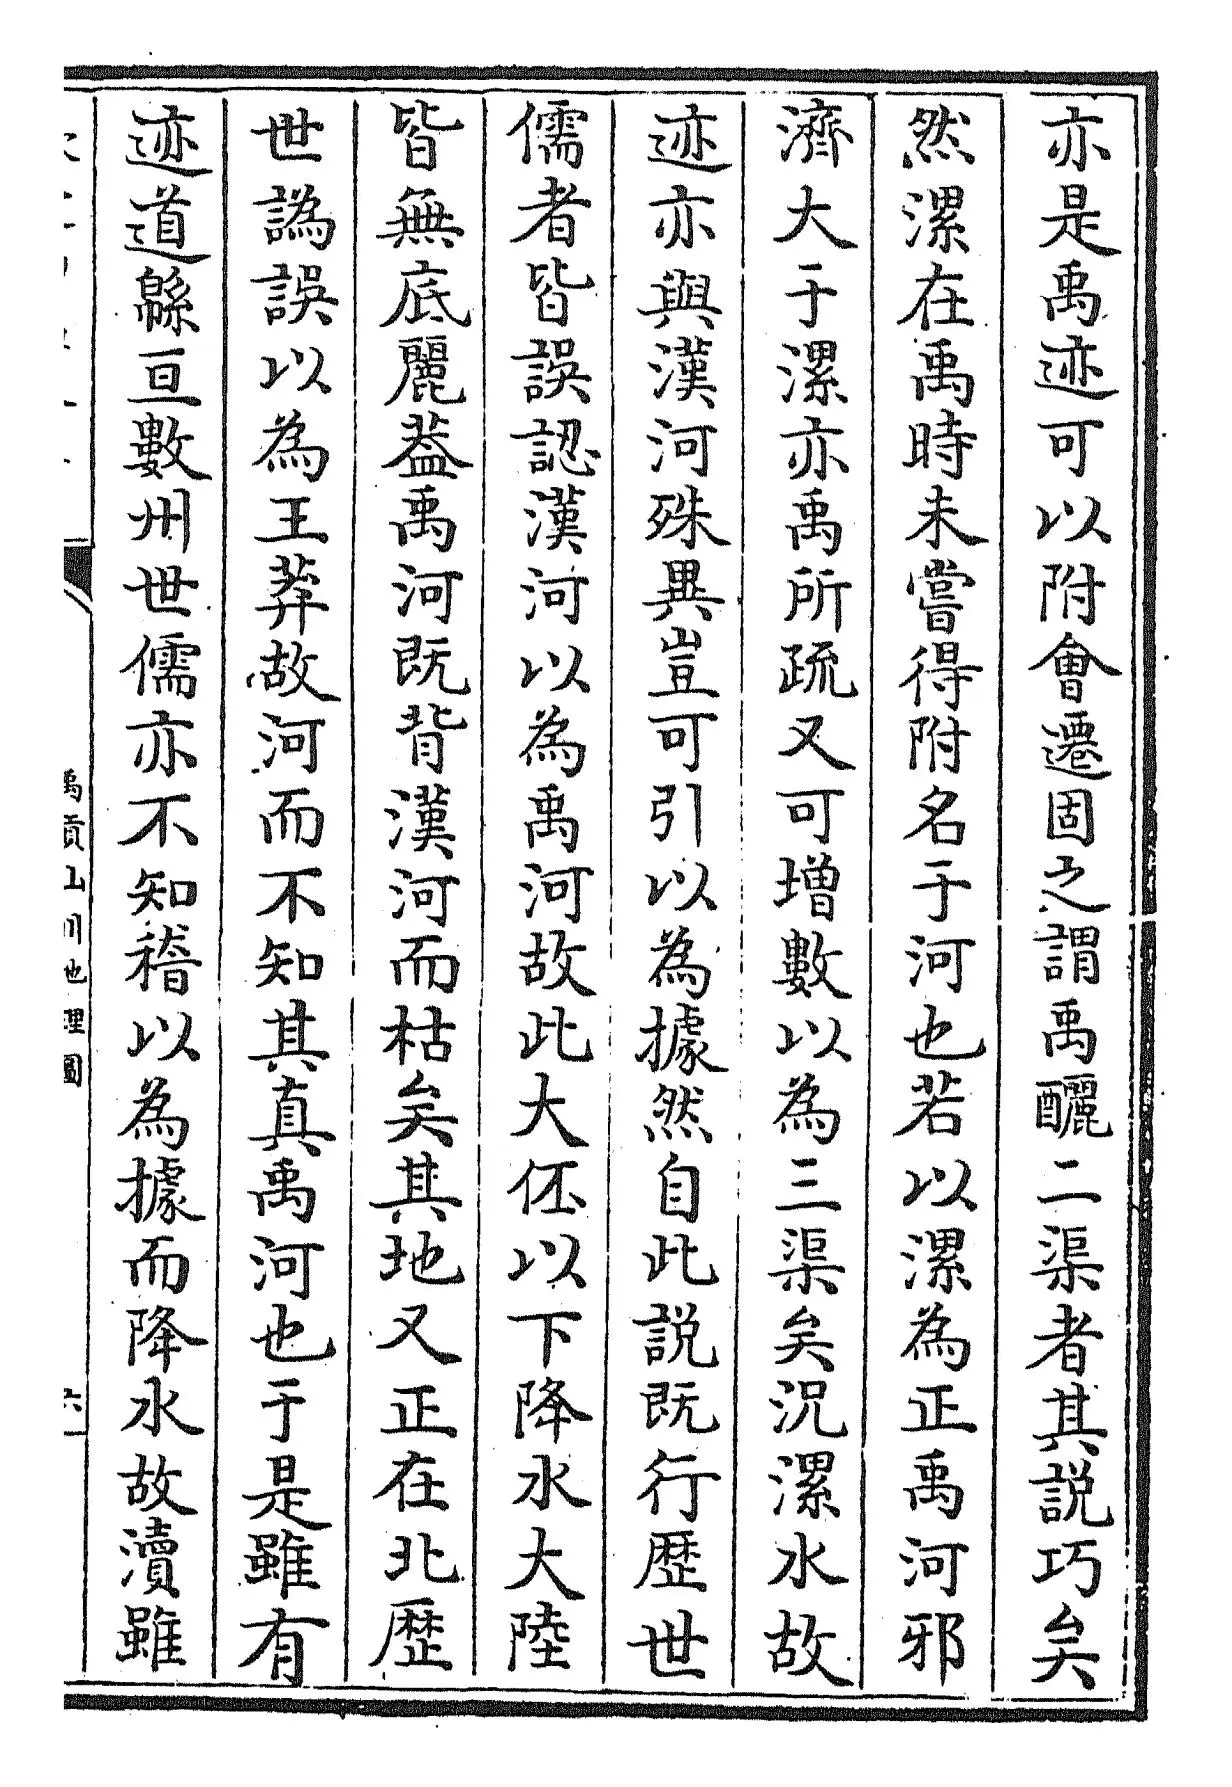 亦是禹迹可以附會遷固之謂禹釃二渠者其説巧矣
然漯在禹時未嘗得附名于河也若以漯為正禹河邪
濟大于漯亦禹所疏又可增數以為三渠矣況漯水故
迹亦與漢河殊異豈可引以為據然自此説既行歴世
儒者皆誤認漢河以為禹河故此大伾以下降水大陸
皆無底麗葢禹河既背漢河而枯矣其地又正在北歴
世譌誤以為王莽故河而不知其真禹河也于是雖有
迹道緜亘數州世儒亦不知稽以為據而降水故瀆雖
禹貢山川地理圖
六